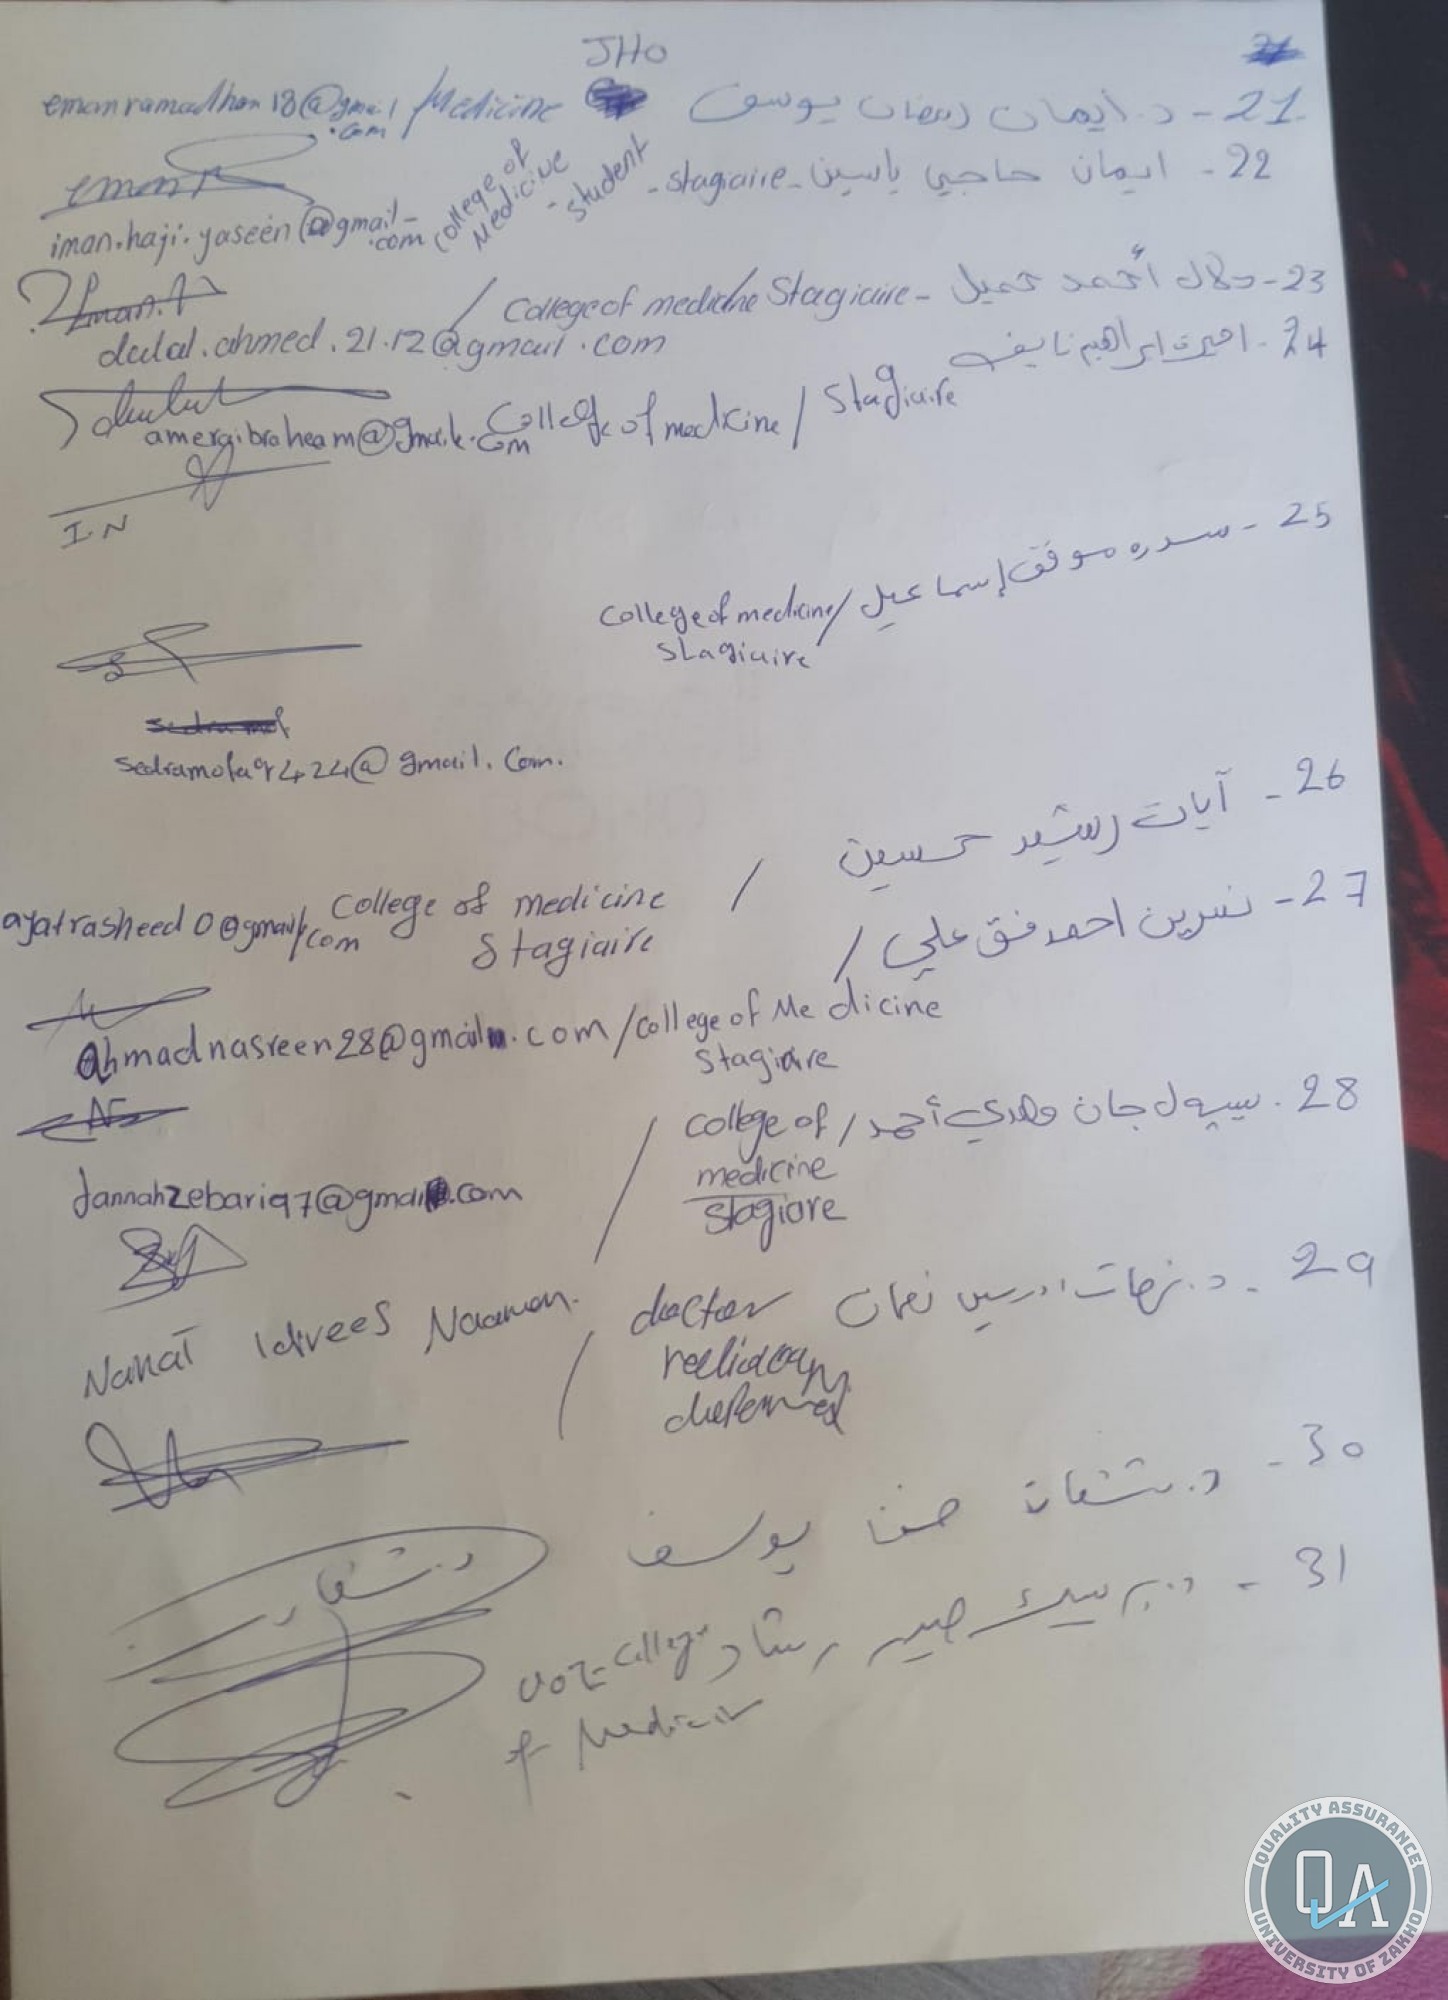 JHO
21- د. أيمان رمضان يوسف
Medicine / emanramadhan18@gmail.com
22- ايمان حاجي ياسين - stagiaire -
college of Medicine - student
iman.haji.yaseen@gmail.com
23- دلال أحمد جميل - College of medicine Stagiaire /
dalal.ahmed.21.12@gmail.com
24- اميرة ابراهيم نايف
College of medicine / Stagiaire
ameraibraheam@gmail.com
I.N
25- سدره موفق إسماعيل / College of medicine
stagiaire
sedramofaq424@gmail.com.
26- آيات رشيد حسين /
College of medicine
Stagiaire
ayatrasheed0@gmail.com
27- نسرين احمد فق علي /
ahmadnasreen28@gmail.com / College of Medicine
stagiaire
28- جان مهدي أحمد / college of
medicine
stagiare
Jannahzebari97@gmail.com
29- د. نزهات ادريس نعمان doctor /
Nahat Idrees Naaman.
30- د. شفان حسن يوسف
د. شفان
31- د. صبري رشاد UOZ - College
of Medicine
QUALITY ASSURANCE
QA
UNIVERSITY OF ZAKHO